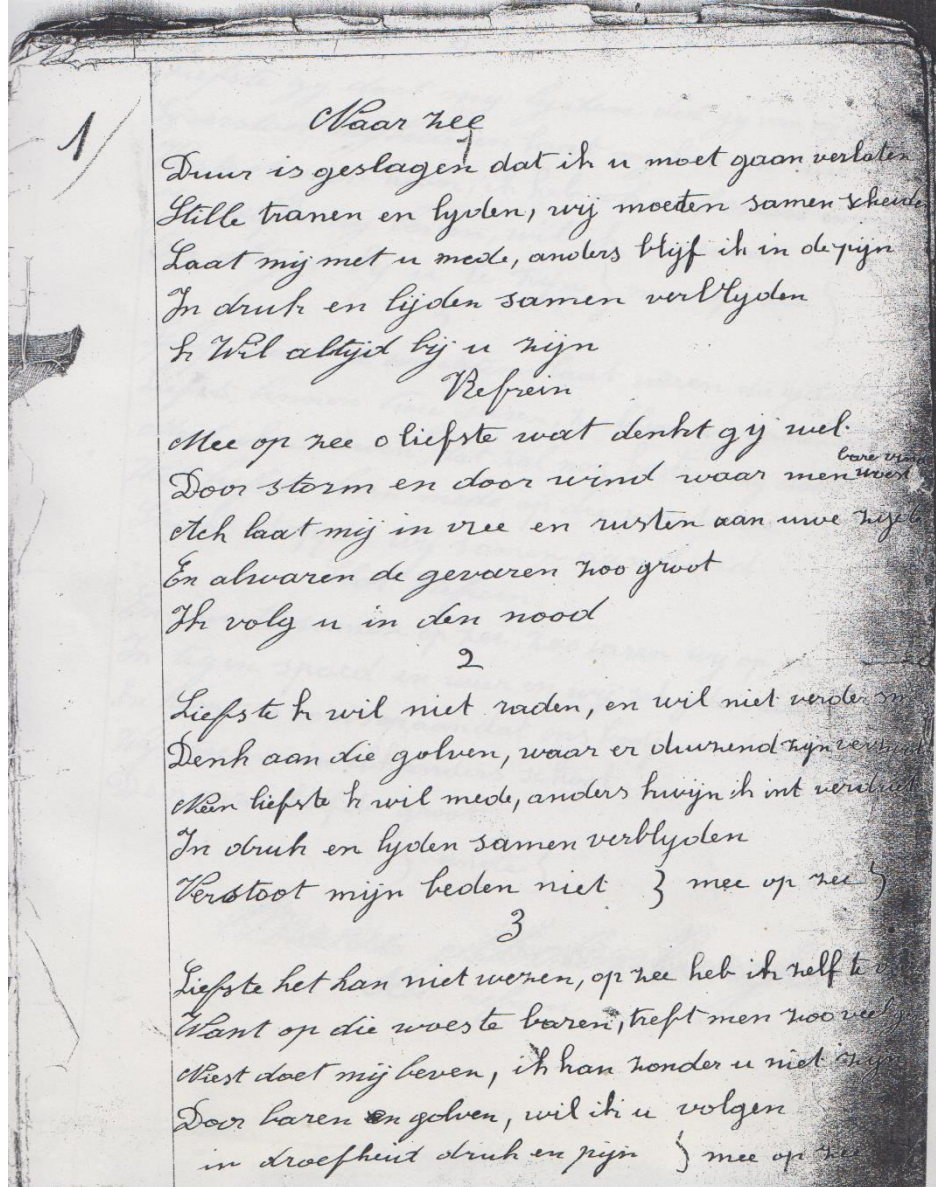 1
Naar zee
1
Duur is geslagen dat ik u moet gaan verlaten
Stille tranen en lyden, wij moeten samen scheide
Laat mij met u mede, anders blijf ik in de pijn
In druk en lijden samen verblyden
k Wil altijd bij u zijn
Refrein
Mee op zee o liefste wat denkt gij wel.
Door storm en door wind waar men woest bare
Ach laat mij in vree en rusten aan uwe
En alwaren de gevaren zoo groot
Ik volg u in den nood
2
Liefste k wil niet raden, en wil niet verder
Denk aan die golven, waar er duizend zyn
Neen liefste k wil mede, anders kwijn ik int verdriet
In druk en lyden samen verblyden
Verstoot mijn beden niet } mee op zee }
3
Liefste het kan niet wezen, op zee heb ik zelf te
Want op die woeste baren, treft men zoo veel
Niest doet mij beven, ik kan zonder u niet zyn
Door baren en golven, wil ik u volgen
in droefheid druk en pijn } mee op zee